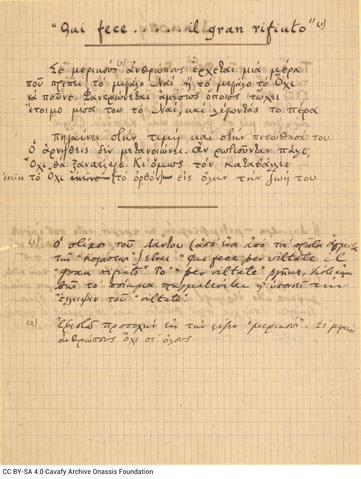 "Che fece .... il gran rifiuto" (1)
Σε μερικούς (2) ανθρώπους έρχεται μια μέρα
που πρέπει το μεγάλο Ναι ή το μεγάλο το Όχι
να πούνε. Φανερώνεται αμέσως όποιος τώχει
έτοιμο μέσα του το Ναι, και λέγοντάς το πέρα
πηγαίνει στην τιμή και στην πεποίθησί του.
Ο αρνηθείς δεν μετανοιώνει. Αν ρωτιούνταν πάλι,
Όχι, θα ξαναέλεγε. Κι όμως τον καταβάλλει
εκείνο το Όχι (το ορθόν) εις όλην την ζωή του.
(1) Ο στίχος του Δάντου
την "Κολάσεως") είναι "che fece per viltate il
gran rifiuto". Το "per viltate"
το ποίημα πραγματεύεται
έλλειψιν του "viltate".
(2) Εφιστώ προσοχήν εις την λέξιν "μερικούς". Σε μερικούς
ανθρώπους όχι σε όλους
CC BY-SA 4.0 Cavafy Archive Onassis Foundation